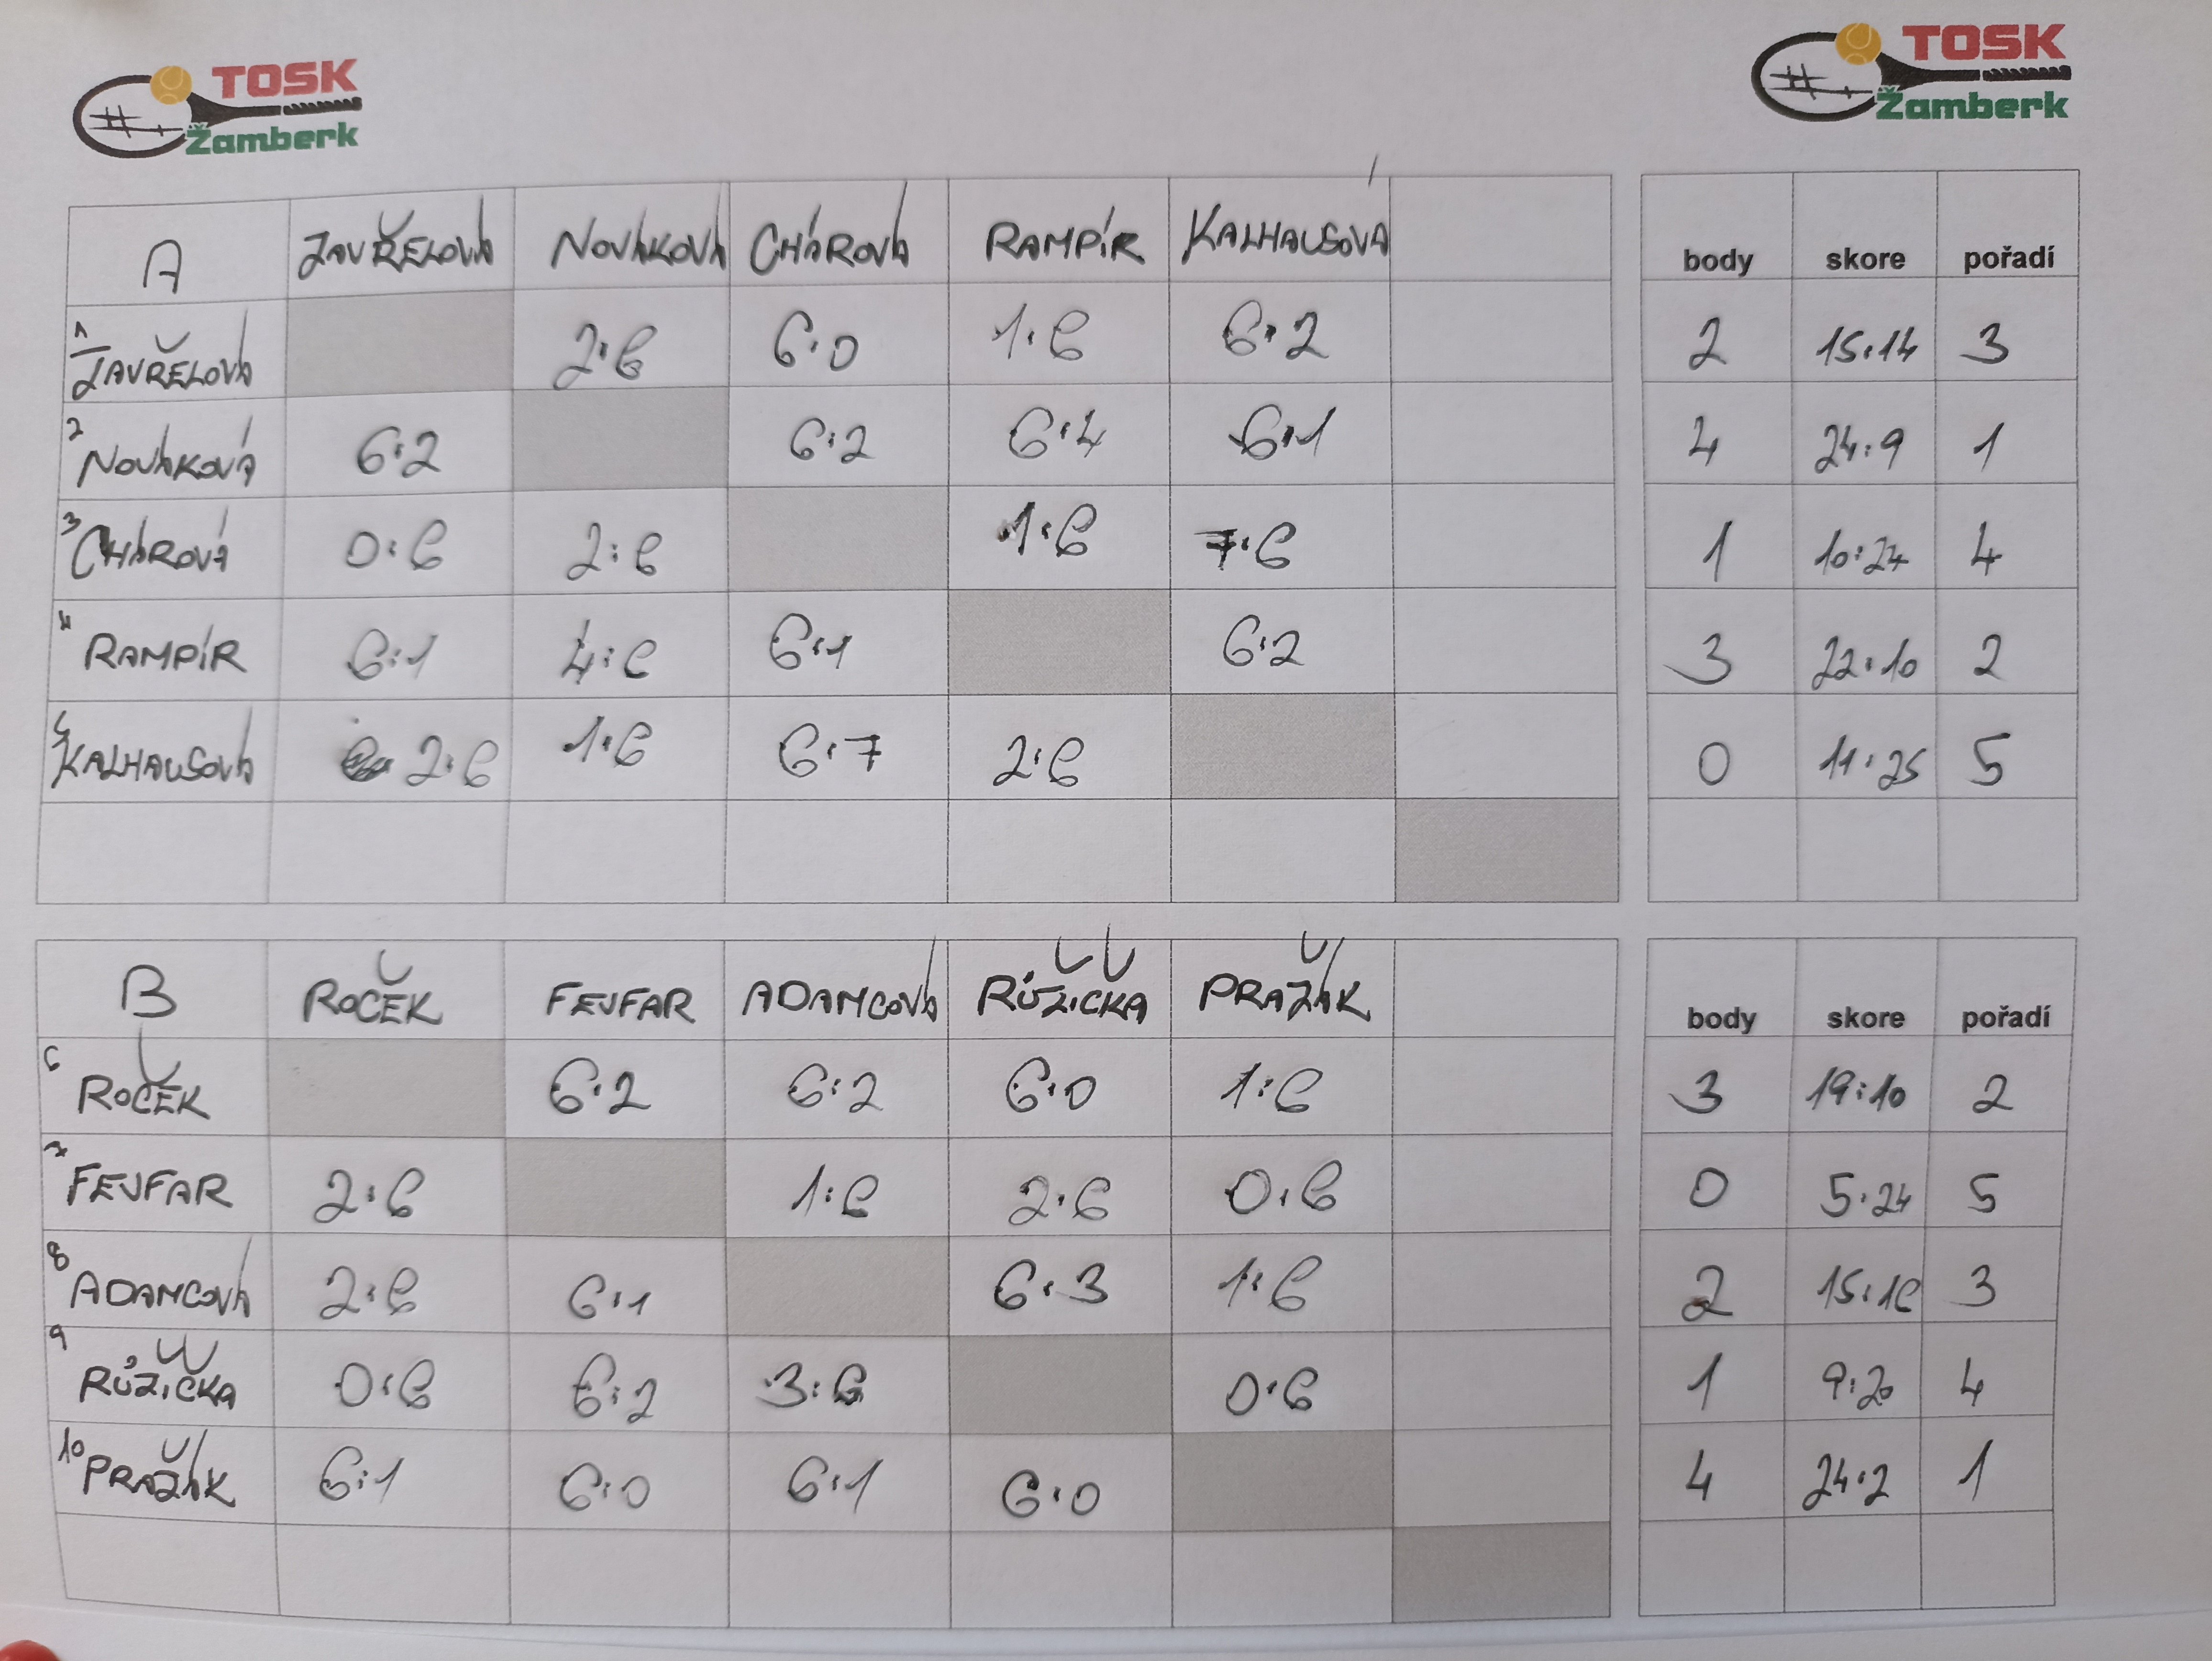 TOSK
Žamberk
TOSK
Žamberk
A JAVŘELOVÁ NOVÁKOVÁ CHÁROVÁ RAMPÍR KALHAUSOVÁ body skore pořadí
1 JAVŘELOVÁ 2:6 6:0 1:6 6:2 2 15:14 3
2 NOVÁKOVÁ 6:2 6:2 6:4 6:1 4 24:9 1
3 CHÁROVÁ 0:6 2:6 1:6 7:6 1 10:24 4
4 RAMPÍR 6:1 4:6 6:1 6:2 3 22:10 2
5 KALHAUSOVÁ 2:6 1:6 6:7 2:6 0 11:25 5
B ROČEK FEJFAR ADAMCOVÁ RŮŽIČKA PRAŽÁK body skore pořadí
6 ROČEK 6:2 6:2 6:0 1:6 3 19:10 2
7 FEJFAR 2:6 1:6 2:6 0:6 0 5:24 5
8 ADAMCOVÁ 2:6 6:1 6:3 1:6 2 15:16 3
9 RŮŽIČKA 0:6 6:2 3:6 0:6 1 9:20 4
10 PRAŽÁK 6:1 6:0 6:1 6:0 4 24:2 1